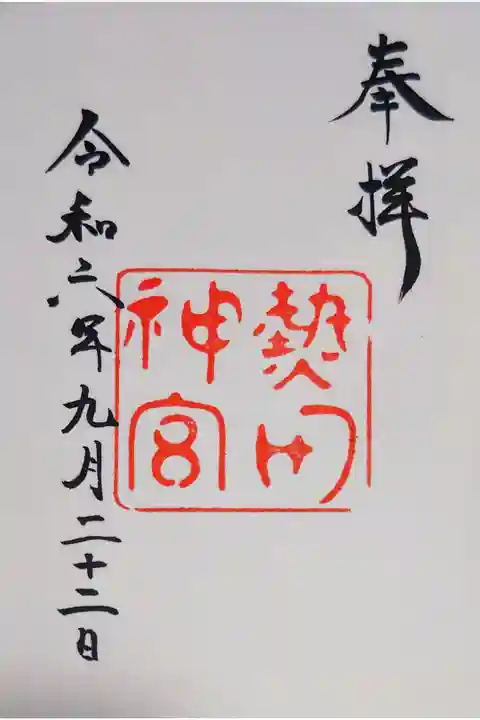 奉拝
熱田
神宮
令和六年九月二十二日